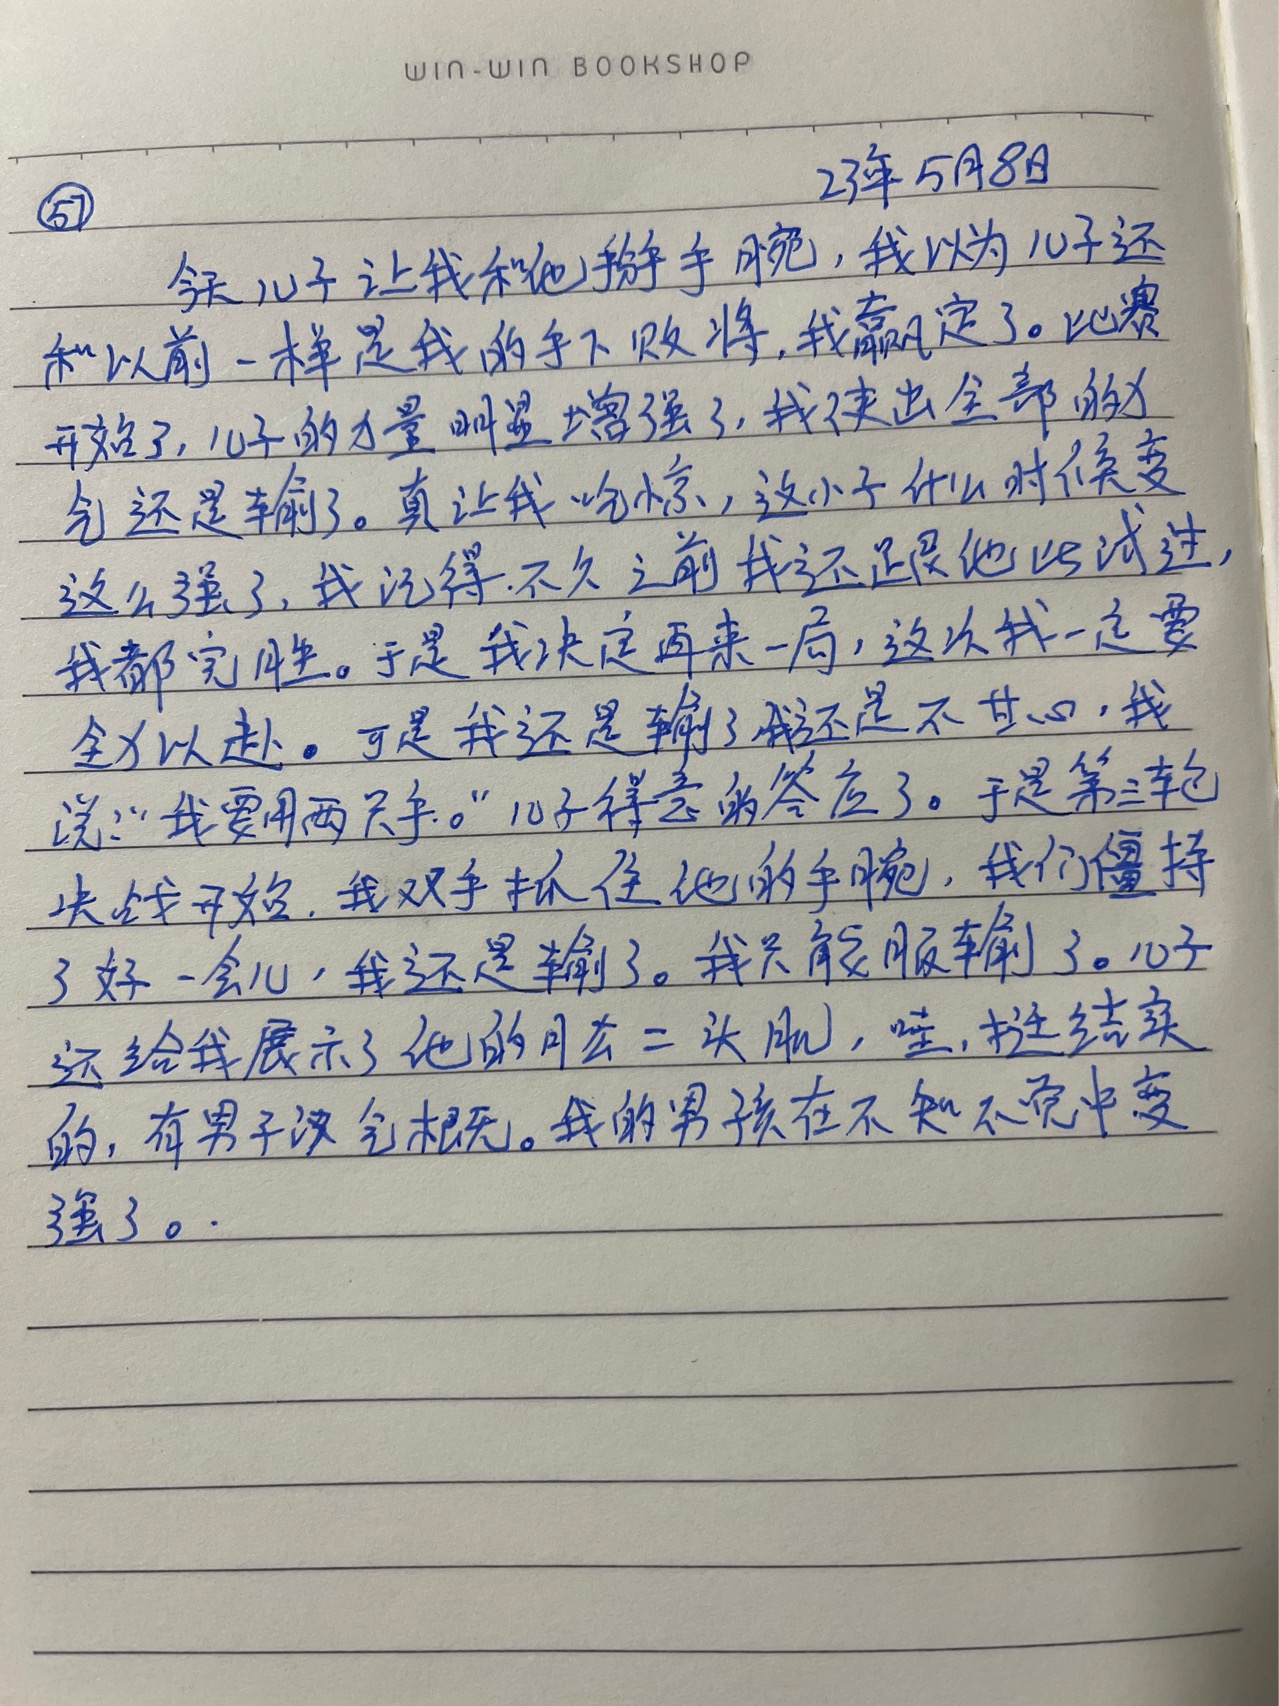 WIN-WIN BOOKSHOP
57 23年5月8日
今天儿子让我和他掰手腕,我以为儿子还
和以前一样是我的手下败将,我赢定了。比赛
开始了,儿子的力量明显增强了,我使出全部的力
气还是输了。真让我吃惊,这小子什么时候变
这么强了,我记得不久之前我还跟他比试过,
我都完胜。于是我决定再来一局,这次我一定要
全力以赴。可是我还是输了我还是不甘心,我
说:“我要用两只手。”儿子得意的答应了。于是第三轮
决战开始,我双手抓住他的手腕,我们僵持
了好一会儿,我还是输了。我只能服输了。儿子
还给我展示了他的肱二头肌,哇,挺结实
的,有男子汉气概。我的男孩在不知不觉中变
强了。